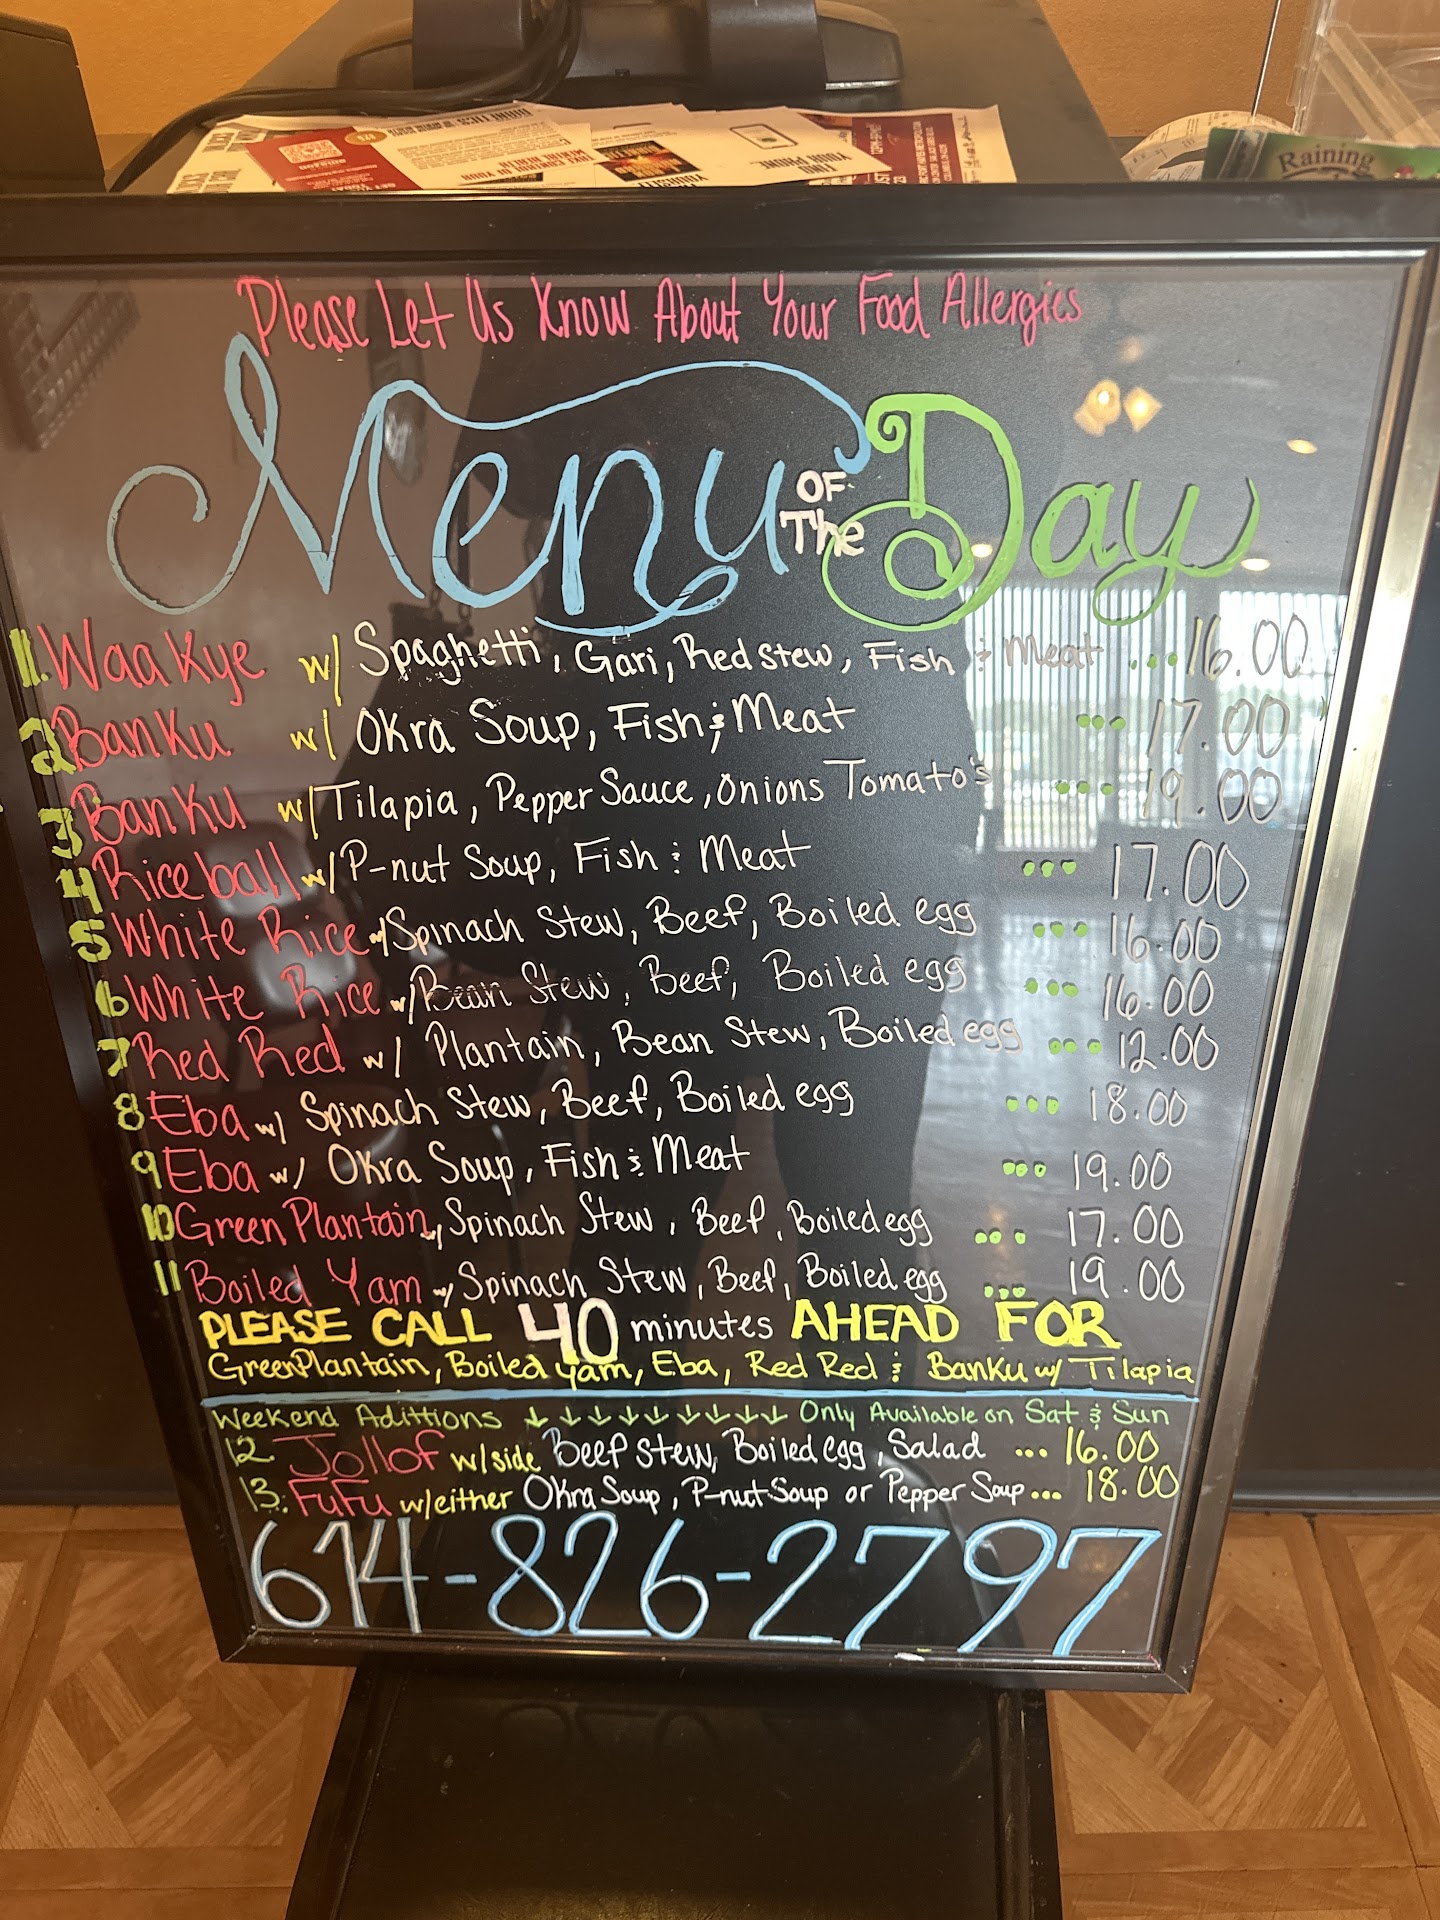 Raining
Please Let Us Know About Your Food Allergies
Menu OF The Day
1. Waakye w/ Spaghetti, Gari, Red stew, Fish & Meat ... 16.00
2 Banku w/ Okra Soup, Fish & Meat ... 17.00
3 Banku w/ Tilapia, Pepper Sauce, Onions Tomato's ... 19.00
4 Rice ball w/ P-nut Soup, Fish & Meat ... 17.00
5 White Rice w/ Spinach Stew, Beef, Boiled egg ... 16.00
6 White Rice w/ Bean Stew, Beef, Boiled egg ... 16.00
7 Red Red w/ Plantain, Bean Stew, Boiled egg ... 12.00
8 Eba w/ Spinach Stew, Beef, Boiled egg ... 18.00
9 Eba w/ Okra Soup, Fish & Meat ... 19.00
10 Green Plantain w/ Spinach Stew, Beef, Boiled egg ... 17.00
11 Boiled Yam w/ Spinach Stew, Beef, Boiled egg ... 19.00
PLEASE CALL 40 minutes AHEAD FOR
Green Plantain, Boiled yam, Eba, Red Red & Banku w/ Tilapia
Weekend Adittions ↓ ↓ ↓ ↓ ↓ ↓ ↓ ↓ ↓ Only Available on Sat & Sun
12. Jollof w/side Beef stew, Boiled egg, Salad ... 16.00
13. FuFu w/either Okra Soup, P-nut Soup or Pepper Soup ... 18.00
614-826-2797